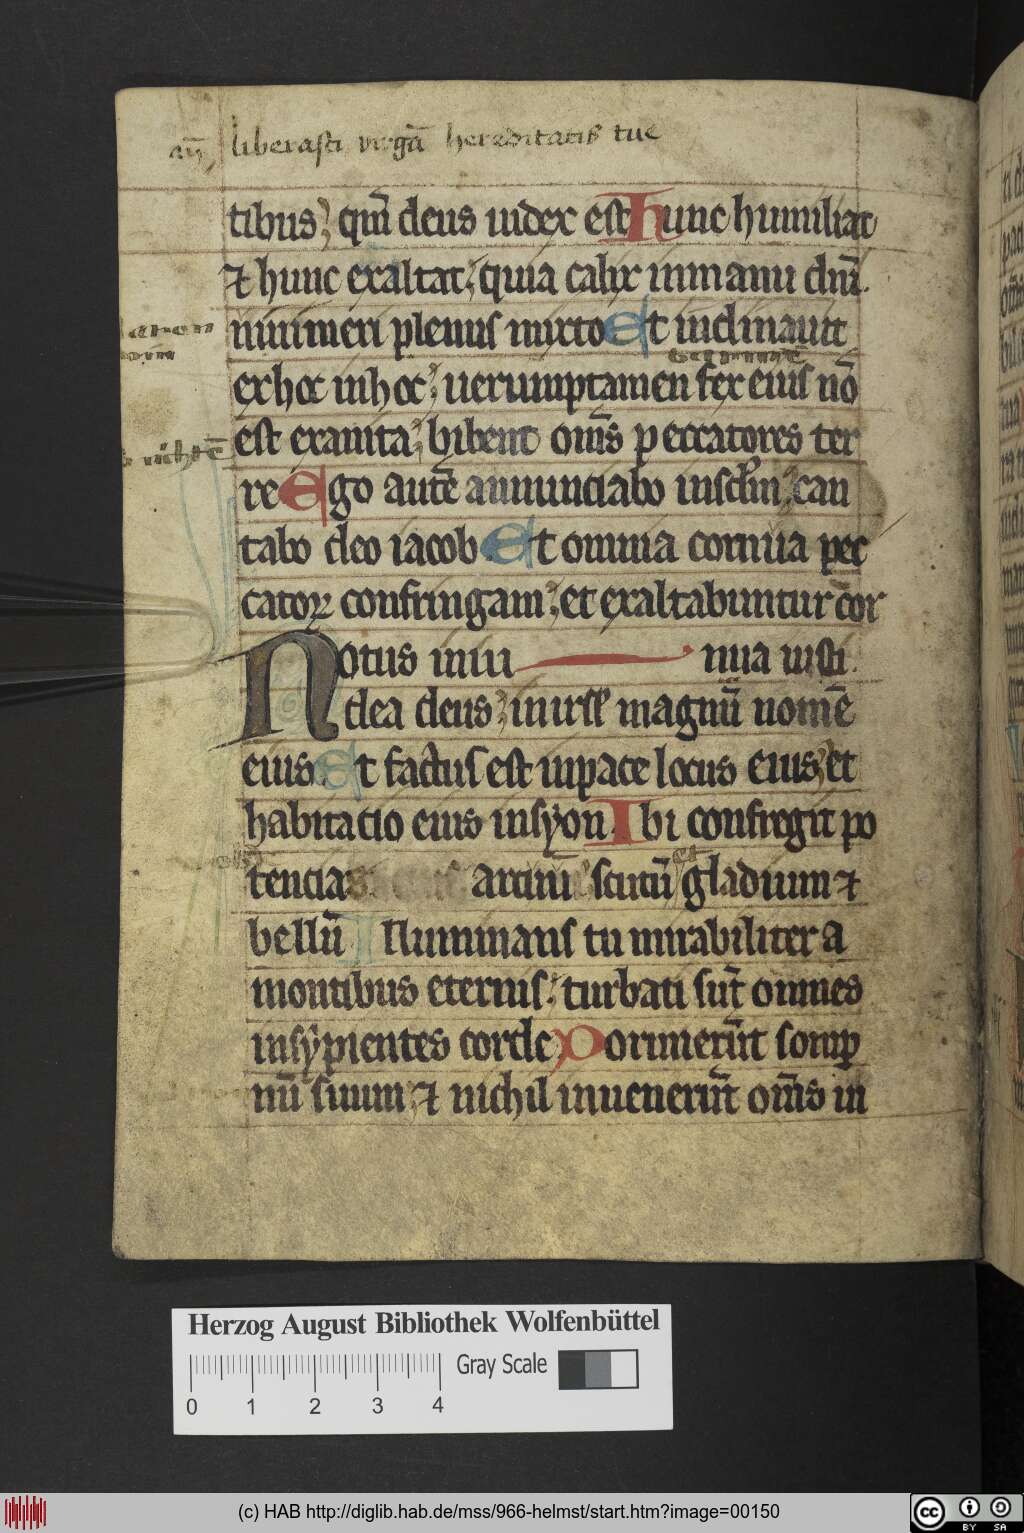 an̄ liberasti virgā hereditatis tue
tibus; qm̄ deus iudex est Hunc humiliat
⁊ hunc exaltat; quia calix inmanu dn̄i.
uini meri plenus mixto Et inclinauit
exhoc inhoc; uerumptamen fex eius nō
est exanita; bibent om̄s peccatores ter
re Ego autē annunciabo insclm̄; can
tabo deo iacob Et omnia cornua pec
catoꝝ confringam; et exaltabuntur cor
Notus iniu nua iusti.
dea deus; inisrl̄ magnū nomē
eius. Et factus est inpace locus eius; et
habitatio eius insyon. Ibi confregit po
tencias arcuū scutū et gladium ⁊
bellū Illuminans tu mirabiliter a
montibus eternis; turbati sūt omnes
insypientes corde; Dormierūt somp
nū suum; ⁊ nichil inuenerūt om̄s in
Herzog August Bibliothek Wolfenbüttel
Gray Scale
0 1 2 3 4
(c) HAB http://diglib.hab.de/mss/966-helmst/start.htm?image=00150
cc BY SA